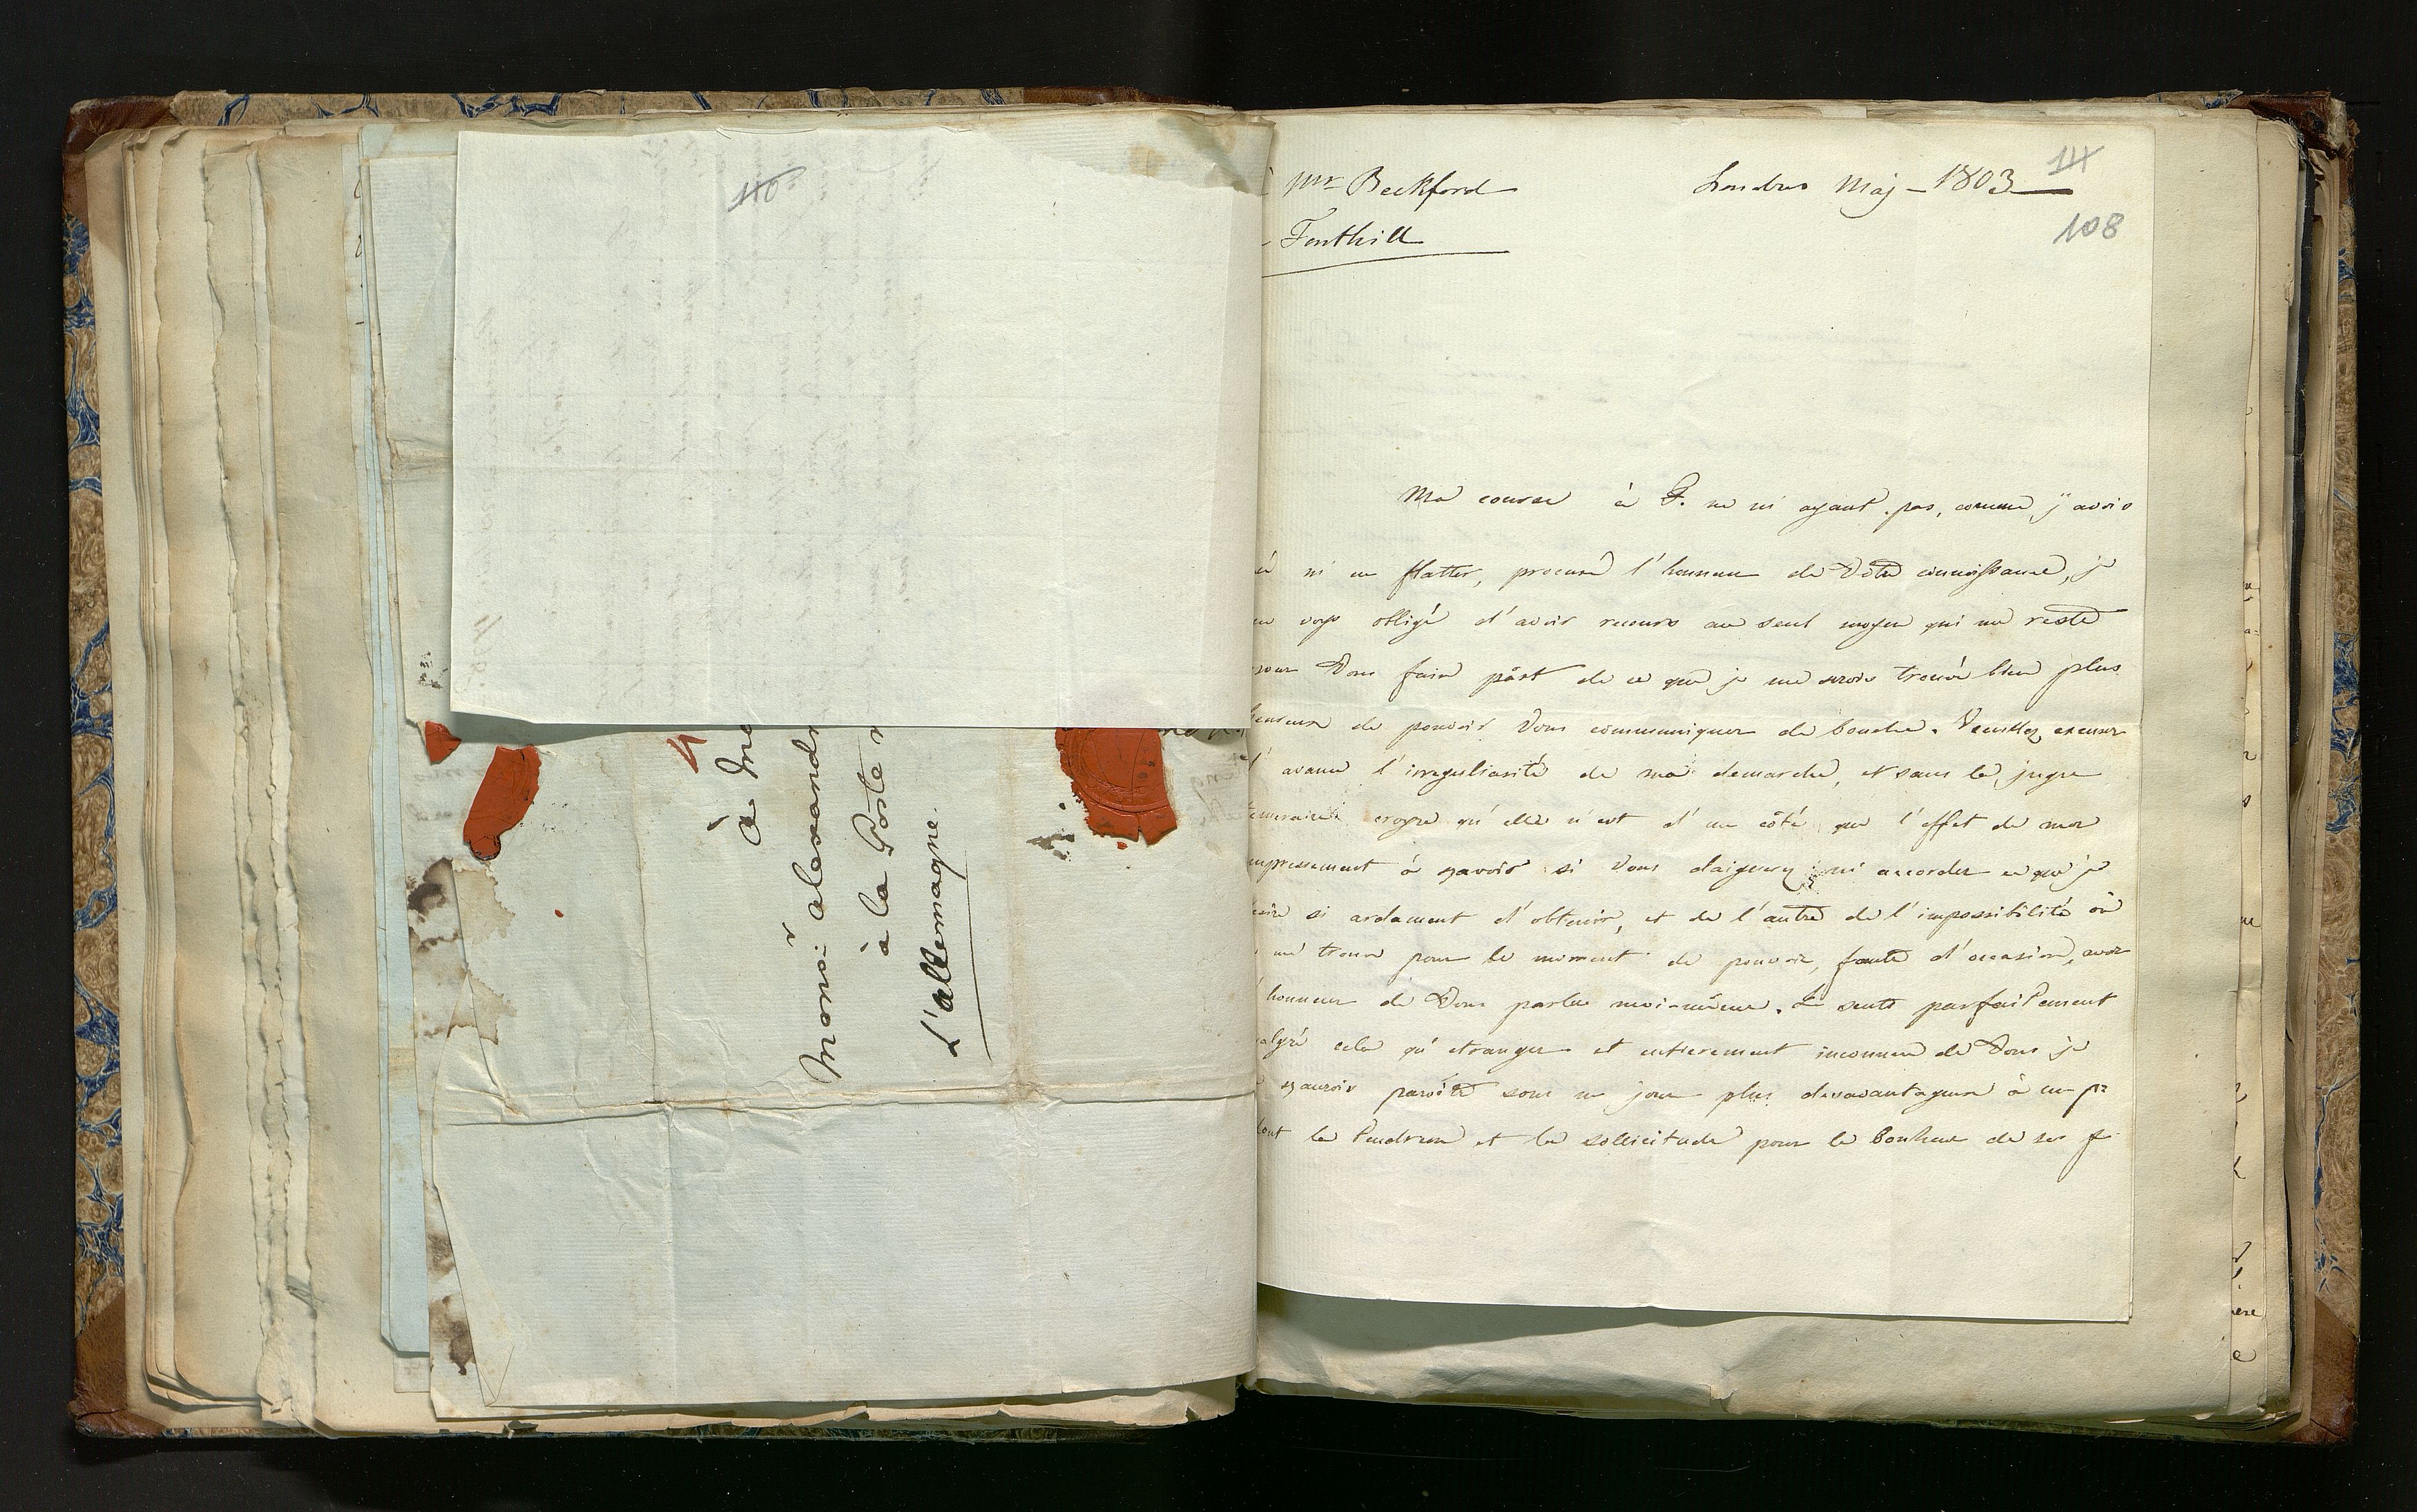 110
à
Monsr. alexandr
à la Poste r
L'allemagne.
4
Mr Beckford
Londres Maj - 1803
111
Fonthill
108
Ma course à F. ne m'ayant pas, comme j'avois
m'en flatter, procuré l'honneur de Votre connoissance, je
voys obligé d'avoir recours au seul moyen qui me reste
pour Vous faire part de ce que je me serois trouvé bien plus
heureux de pouvoir Vous communiquer de bouche. Veuillez excuser
d'avance l'irreguliarité de ma demarche, et sans la juger
temeraire croyez qu'elle n'est d'un côté que l'effet de mon
empressement à sçavoir si Vous daignerez m'accorder ce que je
si ardament d'obtenir, et de l'autre de l'impossibilité où
me trouve pour le moment de pouvoir, faute d'occasion, avoir
honneur de Vous parler moi-même. Je sents parfaitement
malgré cela qu'etranger et entierement inconnu de Vous je
sçaurois paroitre sous un jour plus desavantageux à un pe
dont la tendresse et la sollicitude pour le bonheur de ses f